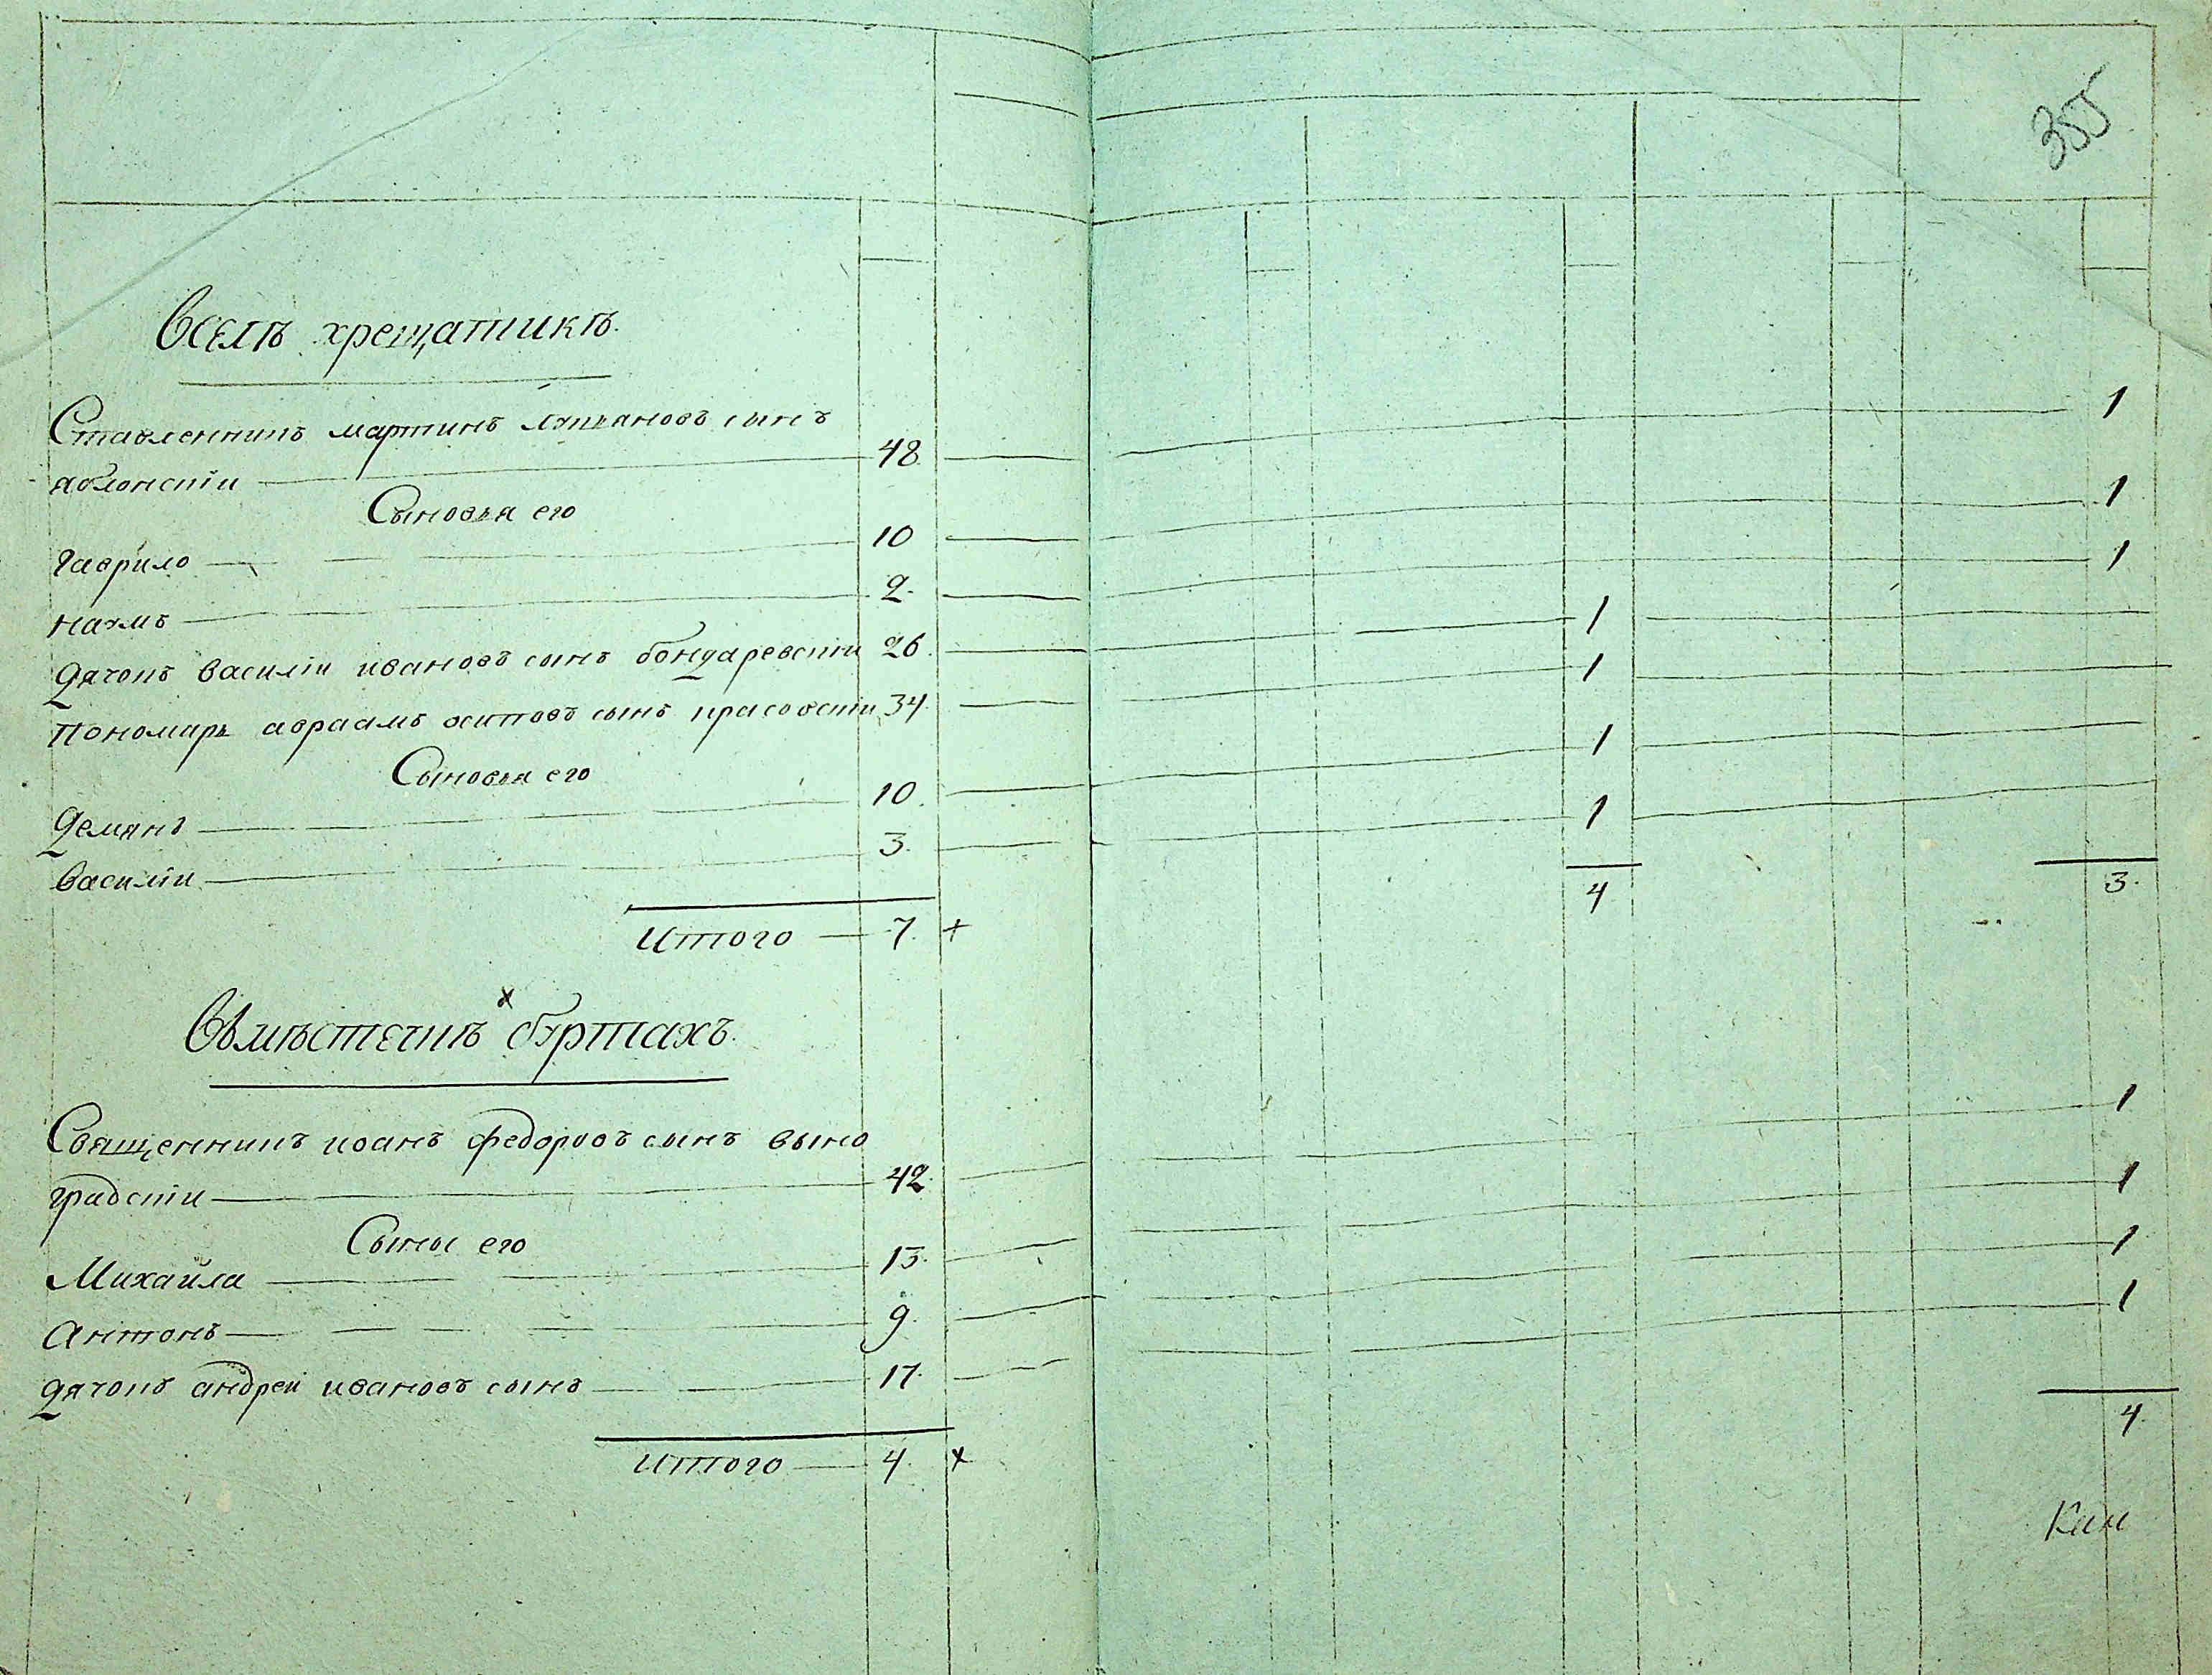 355
Вселѣ хрещатикѣ.
Ставленникъ мартинъ лукьяновъ сынъ
яблонскіи 48 1
Сыновья его
гаврило 10 1
наумъ 2 1
дячокъ василіи ивановъ сынъ бондаревскіи 26 1
пономарь авраамъ осиповъ сынъ красовскіи 34 1
Сыновья его
демянъ 10 1
василіи 3 1
Итого 7 + 4 3
Вѣмѣстечкѣ буртахъ
Священникъ иоанъ федоровъ сынъ выно
градскіи 42 1
Сыны его
Михайла 13 1
антонъ 9 1
дячокъ андреи ивановъ сынъ 17 1
Итого 4 x 4